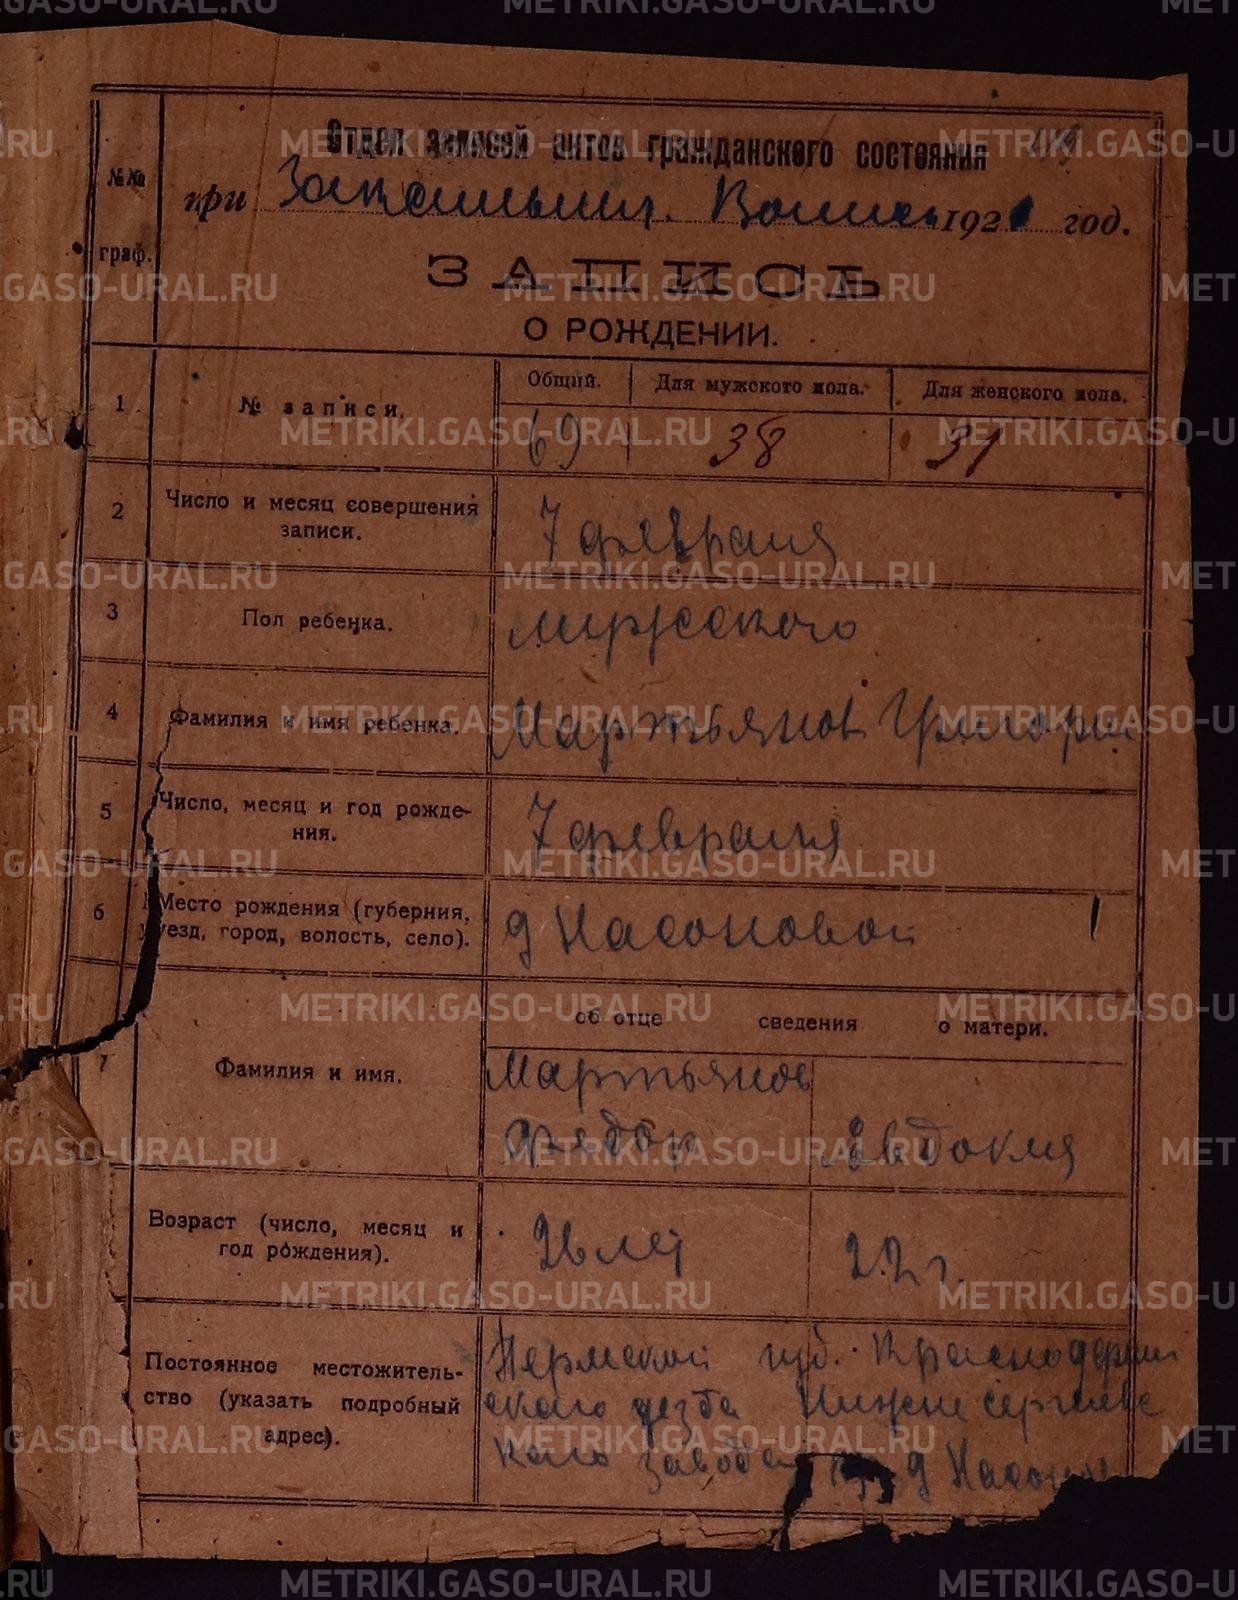 Отдел записей актов гражданского состояния
при 192 год.
№№ граф.
ЗАПИСЬ
О РОЖДЕНИИ.
1 № записи. Общий. Для мужского пола. Для женского пола.
69 38 31
2 Число и месяц совершения записи. 7 февраля
3 Пол ребенка. мужского
4 Фамилия и имя ребенка. Мартьянов Григори
5 Число, месяц и год рожде-
ния. 7 февраля
6 Место рождения (губерния,
уезд, город, волость, село). д Насоновой
об отце сведения о матери.
7 Фамилия и имя. Мартьянов
Федор Евдокия
Возраст (число, месяц и
год рождения). 26 лет 22 г.
Постоянное местожитель-
ство (указать подробный
адрес).
Пермской губ.
уезда Нижне
заводе д
METRIKI.GASO-URAL.RU